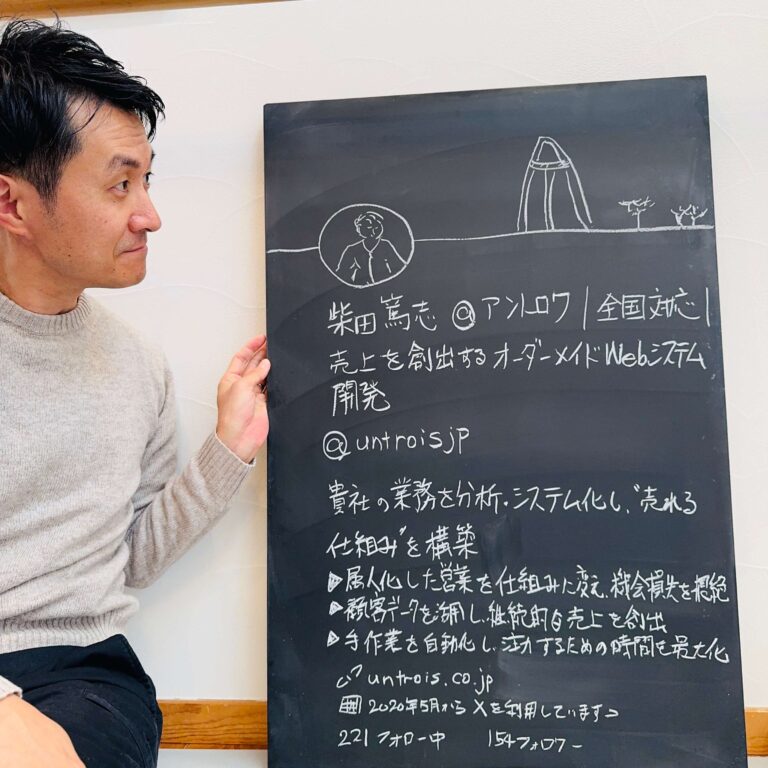 柴田篤志@アントロワ|全国対応|
売上を創出するオーダーメイドWebシステム
開発
@untroisjp
貴社の業務を分析・システム化し、"売れる
仕組み"を構築
▶属人化した営業を仕組みに変え、機会損失を撲絶
▶顧客データを活用し、継続的な売上を創出
▶手作業を自動化し、注力するための時間を最大化
untrois.co.jp
2020年5月からXを利用しています>
221フォロー中 154フォロワー